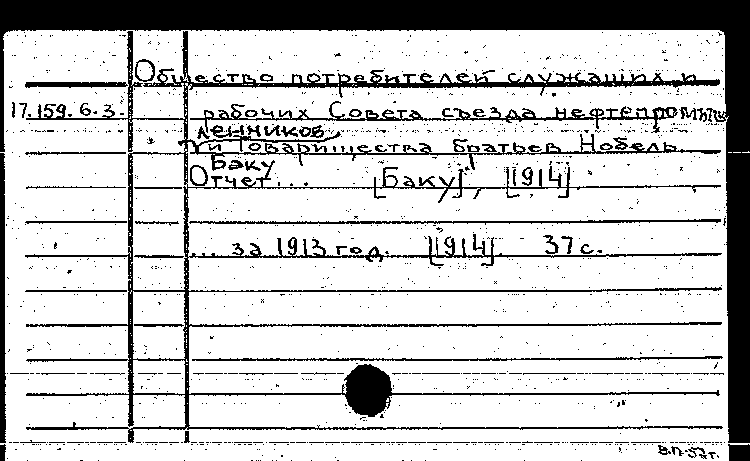 Общество потребителей служащих и
17.159.6.3. рабочих Совета съезда нефтепромыш
ленников
и Товарищества братьев Нобель.
Баку
Отчет... [Баку], [1914].
... за 1913 год. [1914]. 37 с.